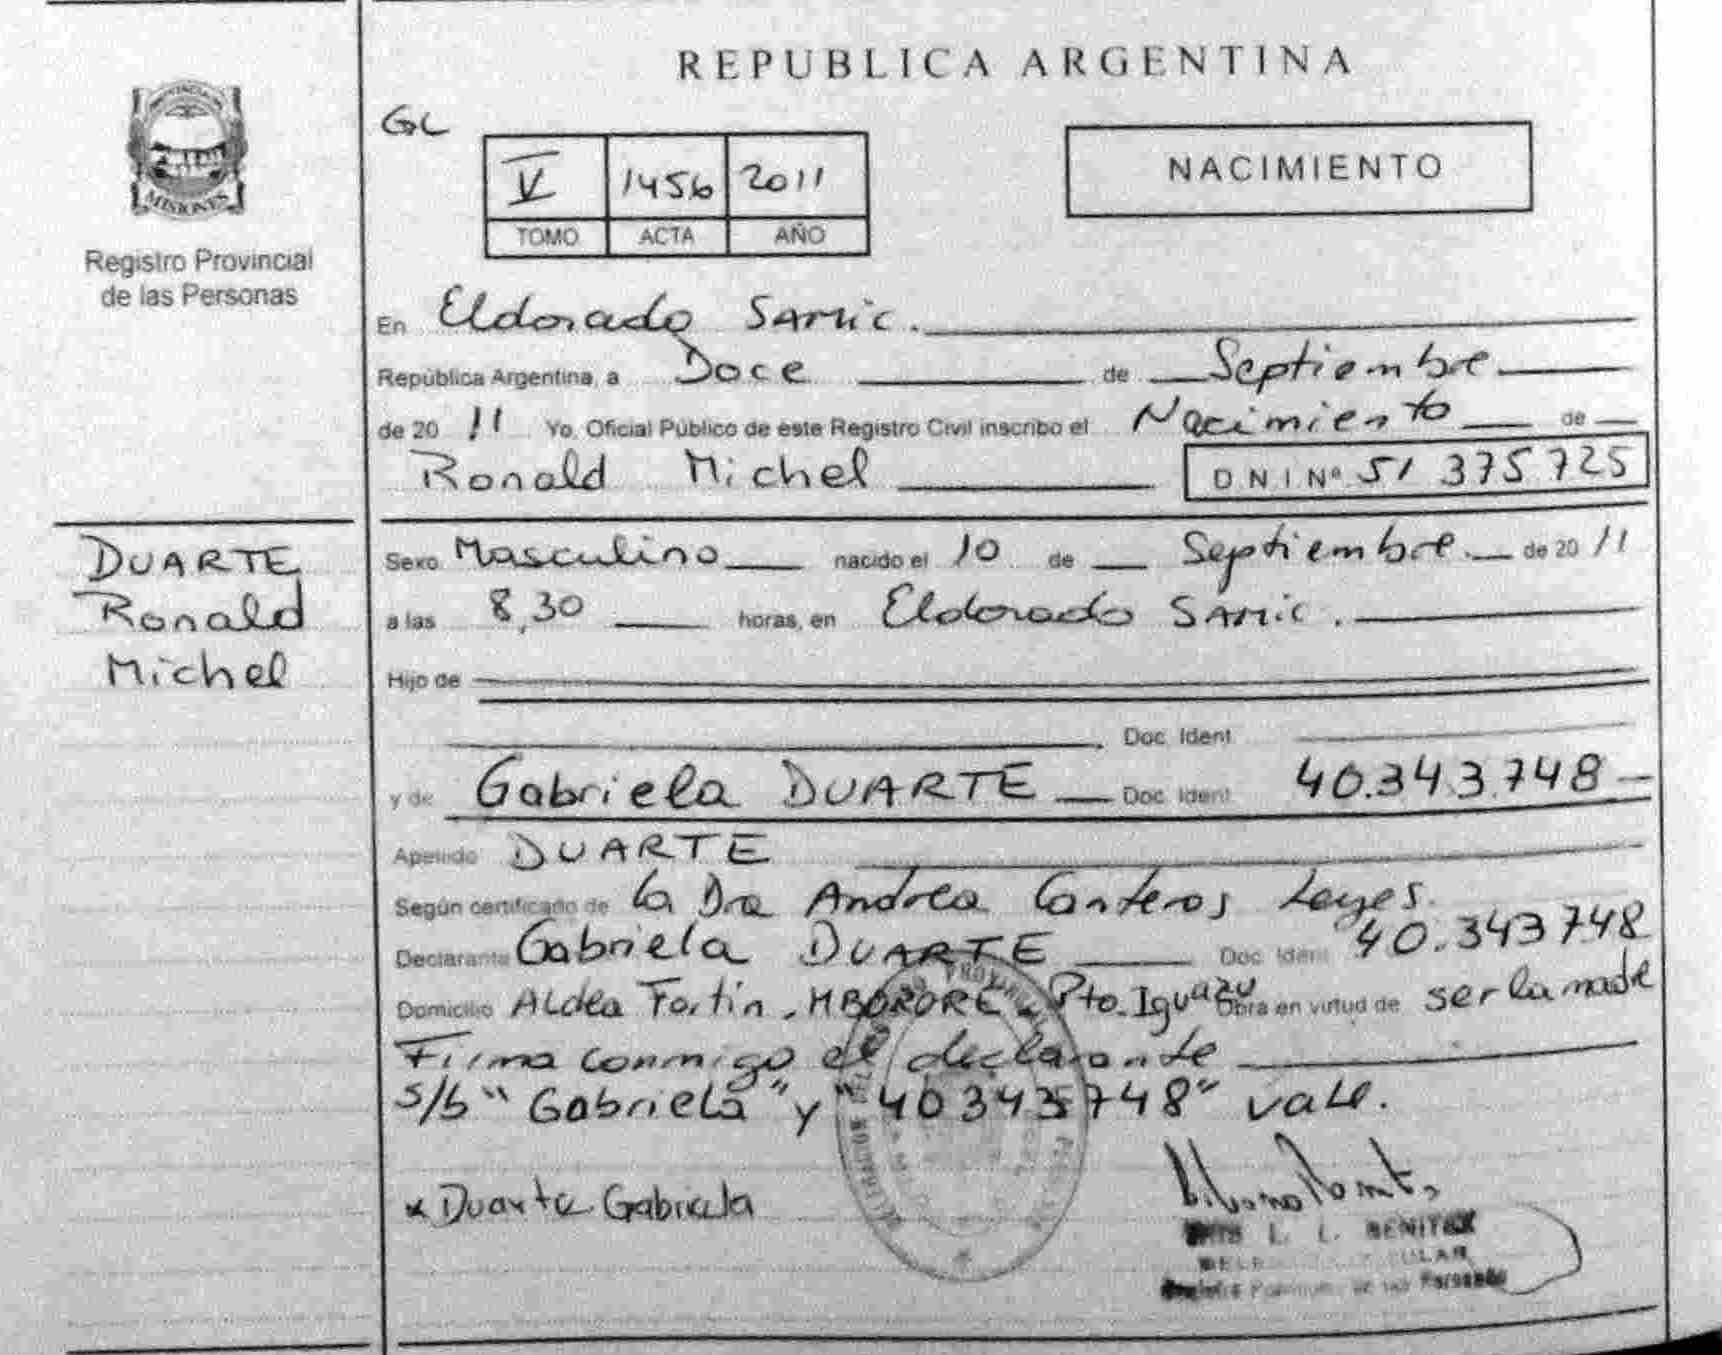 REPUBLICA ARGENTINA
GL
NACIMIENTO
V 1456 2011
TOMO ACTA AÑO
MISIONES
Registro Provincial
de las Personas
En Eldorado SAMIC.
República Argentina, a Doce de Septiembre
de 2011 Yo, Oficial Público de este Registro Civil inscribo el Nacimiento de
Ronald Michel D N I Nº 51 375 725
DUARTE
Ronald
Michel
Sexo Masculino nacido el 10 de Septiembre de 2011
a las 8,30 horas, en Eldorado SAMIC.
Hijo de
Doc. Ident
y de Gabriela DUARTE Doc. Ident 40.343.748
Apellido DUARTE
Según certificado de la Dra Andrea Canteros Leyes.
Declarante Gabriela DUARTE Doc. Ident 40.343748
Domicilio Aldea Fortin. MBORORE. Pto. Iguazu Obra en virtud de ser la madre
Firma conmigo el declarante
s/b "Gabriela" y "40343748" vale.
x Duarte Gabriela
L. L. BENITEZ